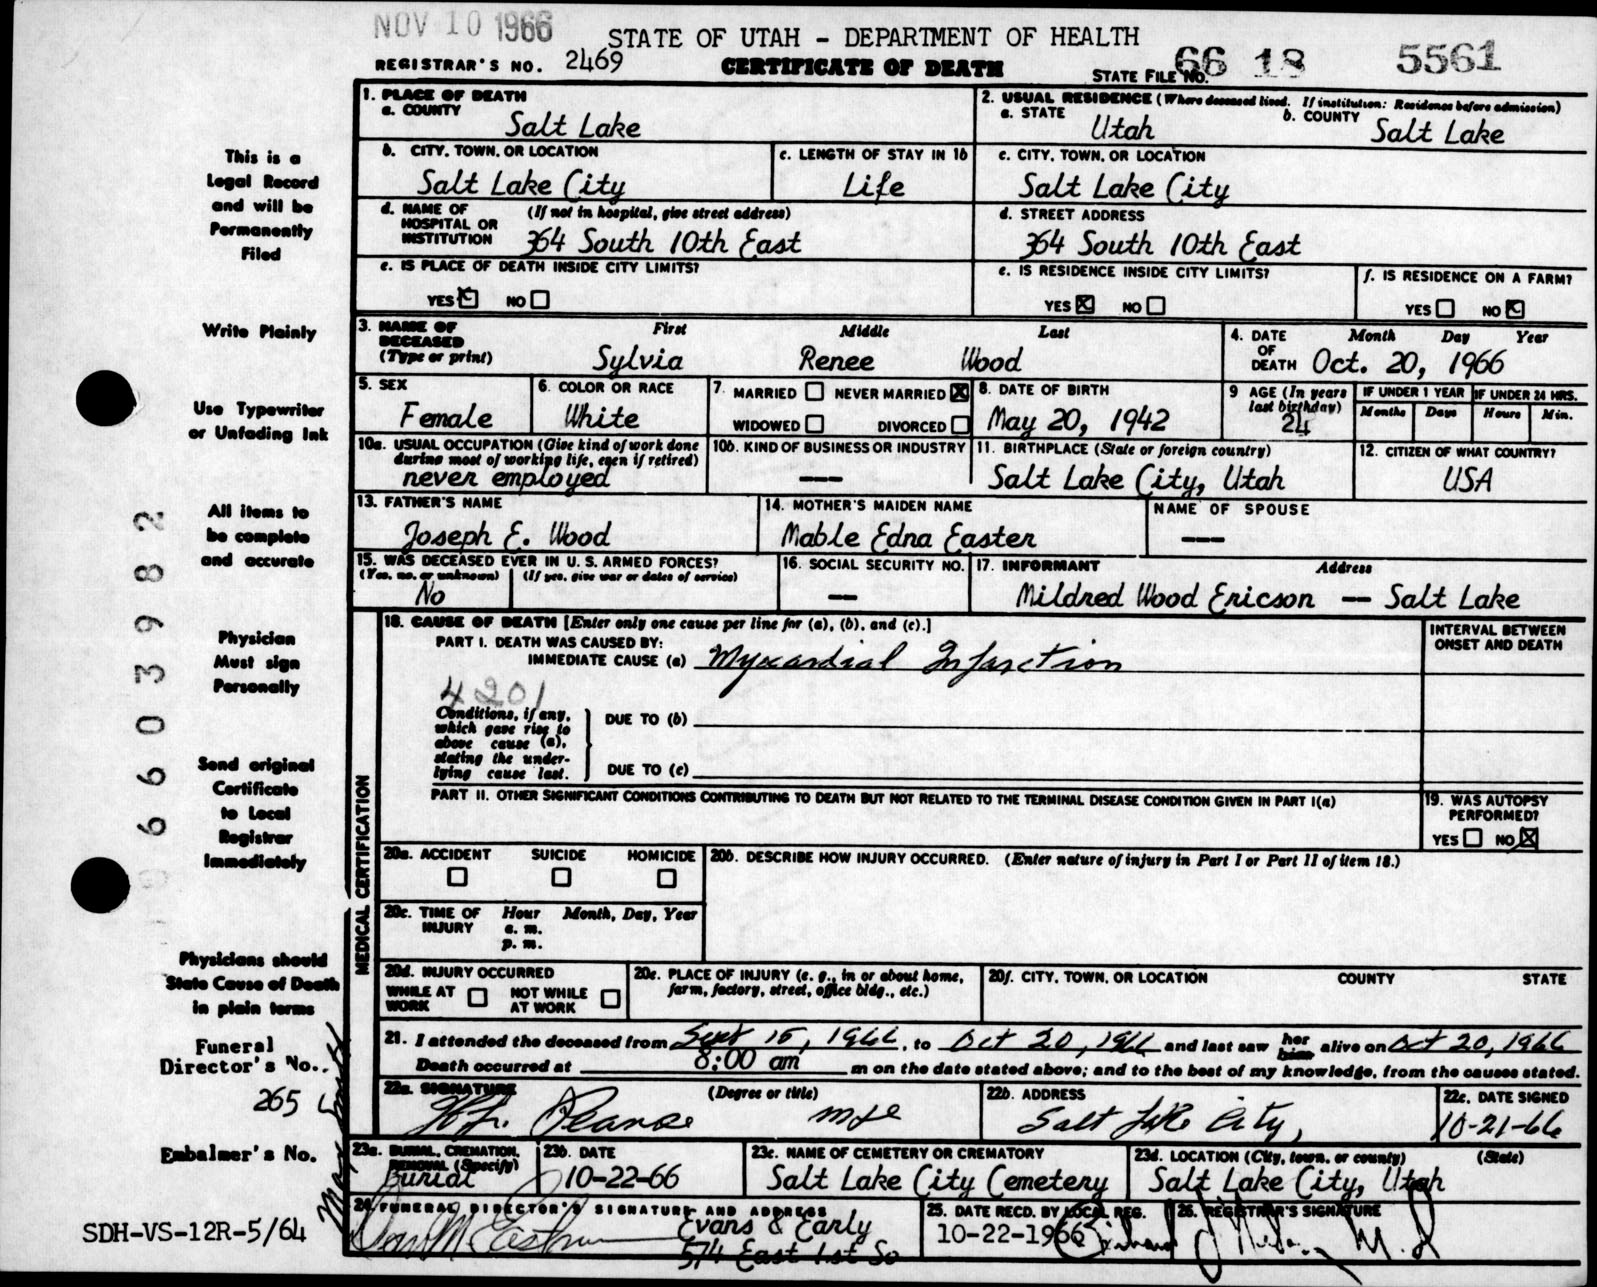 NOV 10 1966
STATE OF UTAH - DEPARTMENT OF HEALTH
REGISTRAR'S NO. 2469
CERTIFICATE OF DEATH
STATE FILE NO. 66 18 5561
1. PLACE OF DEATH
a. COUNTY
Salt Lake
2. USUAL RESIDENCE (Where deceased lived. If institution: Residence before admission)
a. STATE
Utah
b. COUNTY
Salt Lake
b. CITY, TOWN, OR LOCATION
Salt Lake City
c. LENGTH OF STAY IN 1b
Life
c. CITY, TOWN, OR LOCATION
Salt Lake City
d. NAME OF HOSPITAL OR INSTITUTION
(If not in hospital, give street address)
364 South 10th East
d. STREET ADDRESS
364 South 10th East
e. IS PLACE OF DEATH INSIDE CITY LIMITS?
YES NO
e. IS RESIDENCE INSIDE CITY LIMITS?
YES NO
f. IS RESIDENCE ON A FARM?
YES NO
3. NAME OF DECEASED
(Type or print)
First Middle Last
Sylvia Renee Wood
4. DATE OF DEATH
Month Day Year
Oct. 20, 1966
5. SEX
Female
6. COLOR OR RACE
White
7. MARRIED NEVER MARRIED
WIDOWED DIVORCED
8. DATE OF BIRTH
May 20, 1942
9 AGE (In years last birthday)
24
IF UNDER 1 YEAR
Months Days
IF UNDER 24 HRS.
Hours Min.
10a. USUAL OCCUPATION (Give kind of work done during most of working life, even if retired)
never employed
10b. KIND OF BUSINESS OR INDUSTRY
---
11. BIRTHPLACE (State or foreign country)
Salt Lake City, Utah
12. CITIZEN OF WHAT COUNTRY?
USA
13. FATHER'S NAME
Joseph E. Wood
14. MOTHER'S MAIDEN NAME
Mable Edna Easter
NAME OF SPOUSE
---
15. WAS DECEASED EVER IN U. S. ARMED FORCES?
(Yes, no, or unknown) (If yes, give war or dates of service)
No
16. SOCIAL SECURITY NO.
--
17. INFORMANT Address
Mildred Wood Ericson -- Salt Lake
MEDICAL CERTIFICATION
18. CAUSE OF DEATH [Enter only one cause per line for (a), (b), and (c).]
PART I. DEATH WAS CAUSED BY:
IMMEDIATE CAUSE (a) Myocardial Infarction
INTERVAL BETWEEN ONSET AND DEATH
4201
Conditions, if any, which gave rise to above cause (a), stating the underlying cause last.
DUE TO (b)
DUE TO (c)
PART II. OTHER SIGNIFICANT CONDITIONS CONTRIBUTING TO DEATH BUT NOT RELATED TO THE TERMINAL DISEASE CONDITION GIVEN IN PART I(a)
19. WAS AUTOPSY PERFORMED?
YES NO
20a. ACCIDENT SUICIDE HOMICIDE
20b. DESCRIBE HOW INJURY OCCURRED. (Enter nature of injury in Part I or Part II of item 18.)
20c. TIME OF INJURY
Hour Month, Day, Year
a. m.
p. m.
20d. INJURY OCCURRED
WHILE AT WORK NOT WHILE AT WORK
20e. PLACE OF INJURY (e. g., in or about home, farm, factory, street, office bldg., etc.)
20f. CITY, TOWN, OR LOCATION COUNTY STATE
21. I attended the deceased from Sept 15, 1966, to Oct 20, 1966 and last saw her him alive on Oct 20, 1966
Death occurred at 8:00 am m on the date stated above; and to the best of my knowledge, from the causes stated.
22a. SIGNATURE (Degree or title)
Pearse
22b. ADDRESS
Salt Lake City,
22c. DATE SIGNED
10-21-66
23a. BURIAL, CREMATION, REMOVAL (Specify)
Burial
23b. DATE
10-22-66
23c. NAME OF CEMETERY OR CREMATORY
Salt Lake City Cemetery
23d. LOCATION (City, town, or county) (State)
Salt Lake City, Utah
24. FUNERAL DIRECTOR'S SIGNATURE AND ADDRESS
Evans & Early
574 East 1st So
25. DATE RECD. BY LOCAL REG.
10-22-1966
26. REGISTRAR'S SIGNATURE
M.D
This is a
Legal Record
and will be
Permanently
Filed
Write Plainly
Use Typewriter
or Unfading Ink
All items to
be complete
and accurate
Physician
Must sign
Personally
Send original
Certificate
to Local
Registrar
Immediately
Physicians should
State Cause of Death
in plain terms
Funeral
Director's No..
265
Embalmer's No.
SDH-VS-12R-5/64
6603982